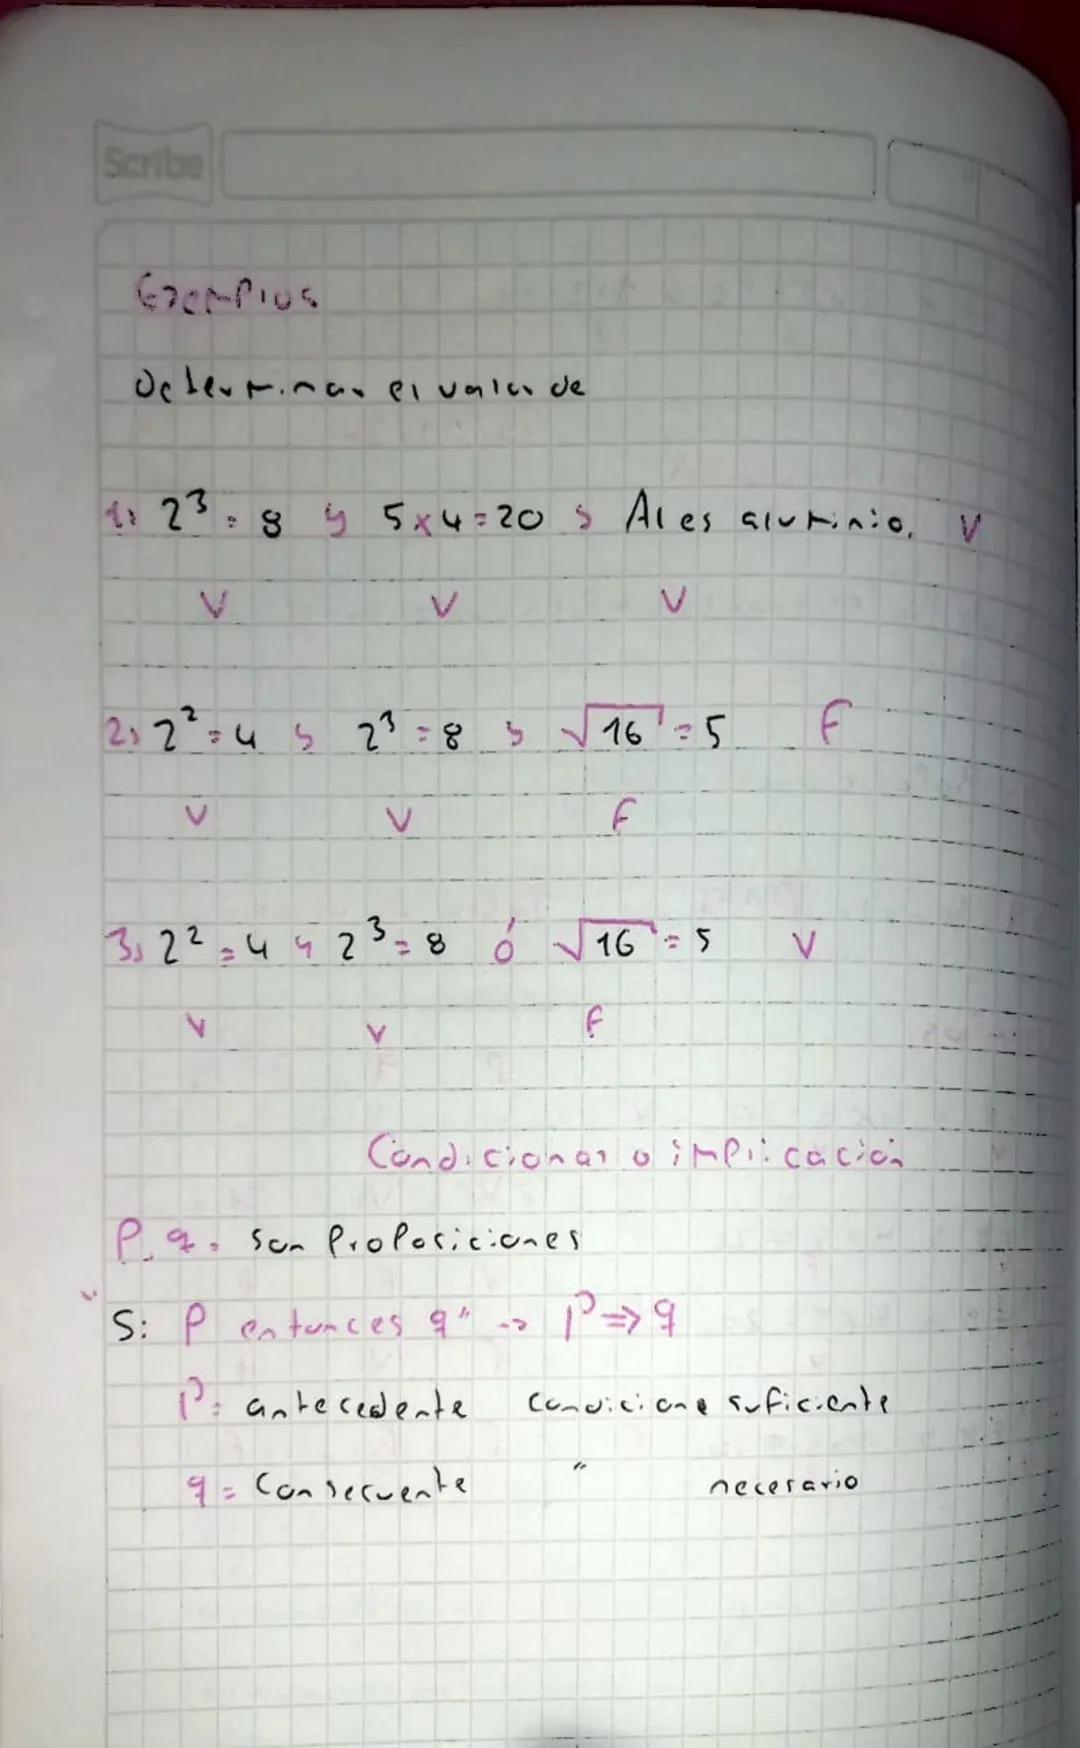 Scribe
Ejemplos
Determinar el valor de
1) 2³ = 8 y 5 x 4 = 20 y Al es aluminio. V
V V V
2) 2² = 4 y 2³ = 8 y √16 = 5 F
V V F
3) 2² = 4 y 2³ = 8 ó √16 = 5 V
V V F
Condicional o implicación
P, q = son Proposiciones
"Si P entonces q" -> P => q
P = antecedente Condicione suficiente
q = Consecuente " necesario